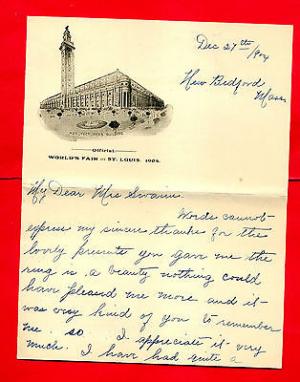 Dec 27th/904
New Bedford
Mass
Official
WORLD'S FAIR ST. LOUIS. 1904.
My Dear Mrs
Words cannot
express my sincere thanks for the
lovely presents you gave me the
ring is a beauty nothing could
have pleased me more and it
was very kind of you to remember
me so I appreciate it very
much. I have had quite a